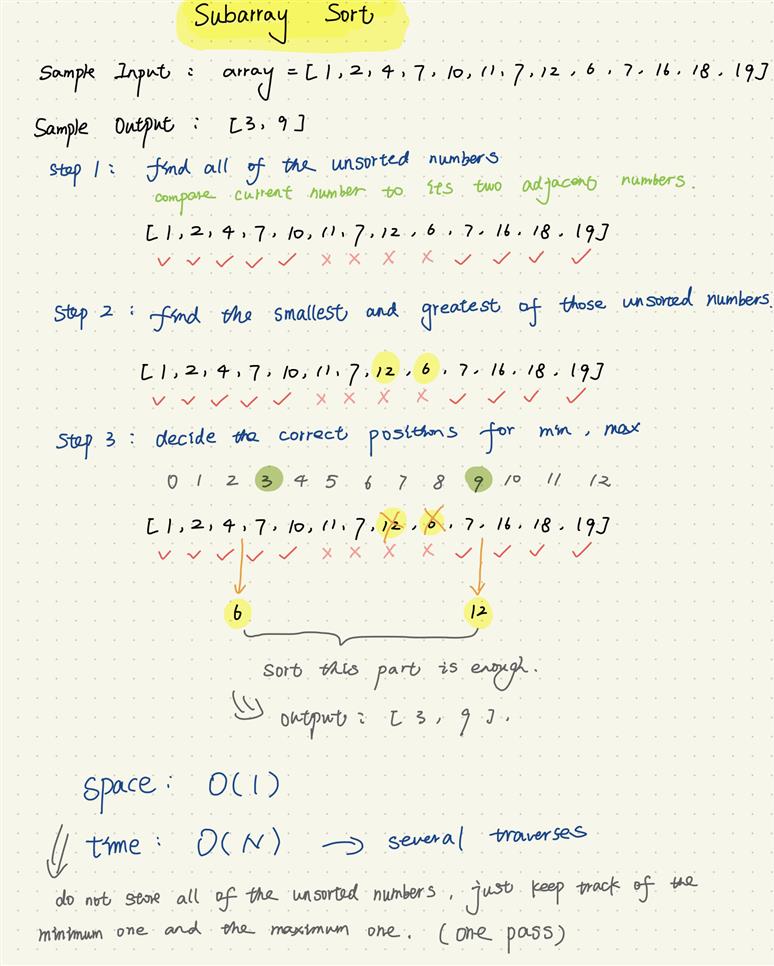 Subarray Sort
Sample Input : array = [ 1, 2, 4, 7, 10, 11, 7, 12, 6, 7, 16, 18, 19]
Sample Output : [3, 9]
Step 1 : find all of the unsorted numbers
compare current number to its two adjacent numbers.
[ 1, 2, 4, 7, 10, 11, 7, 12, 6, 7, 16, 18, 19]
✓ ✓ ✓ ✓ ✓ × × × × ✓ ✓ ✓ ✓
Step 2 : find the smallest and greatest of those unsorted numbers.
[ 1, 2, 4, 7, 10, 11, 7, 12, 6, 7, 16, 18, 19]
✓ ✓ ✓ ✓ ✓ × × × × ✓ ✓ ✓ ✓
Step 3 : decide the correct positions for min, max
0 1 2 3 4 5 6 7 8 9 10 11 12
[ 1, 2, 4, 7, 10, 11, 7, 12, 6, 7, 16, 18, 19]
✓ ✓ ✓ ✓ ✓ × × × × ✓ ✓ ✓ ✓
6 12
Sort this part is enough.
output : [ 3, 9 ].
Space : O(1)
time : O(N) → several traverses
do not store all of the unsorted numbers, just keep track of the
minimum one and the maximum one. (one pass)